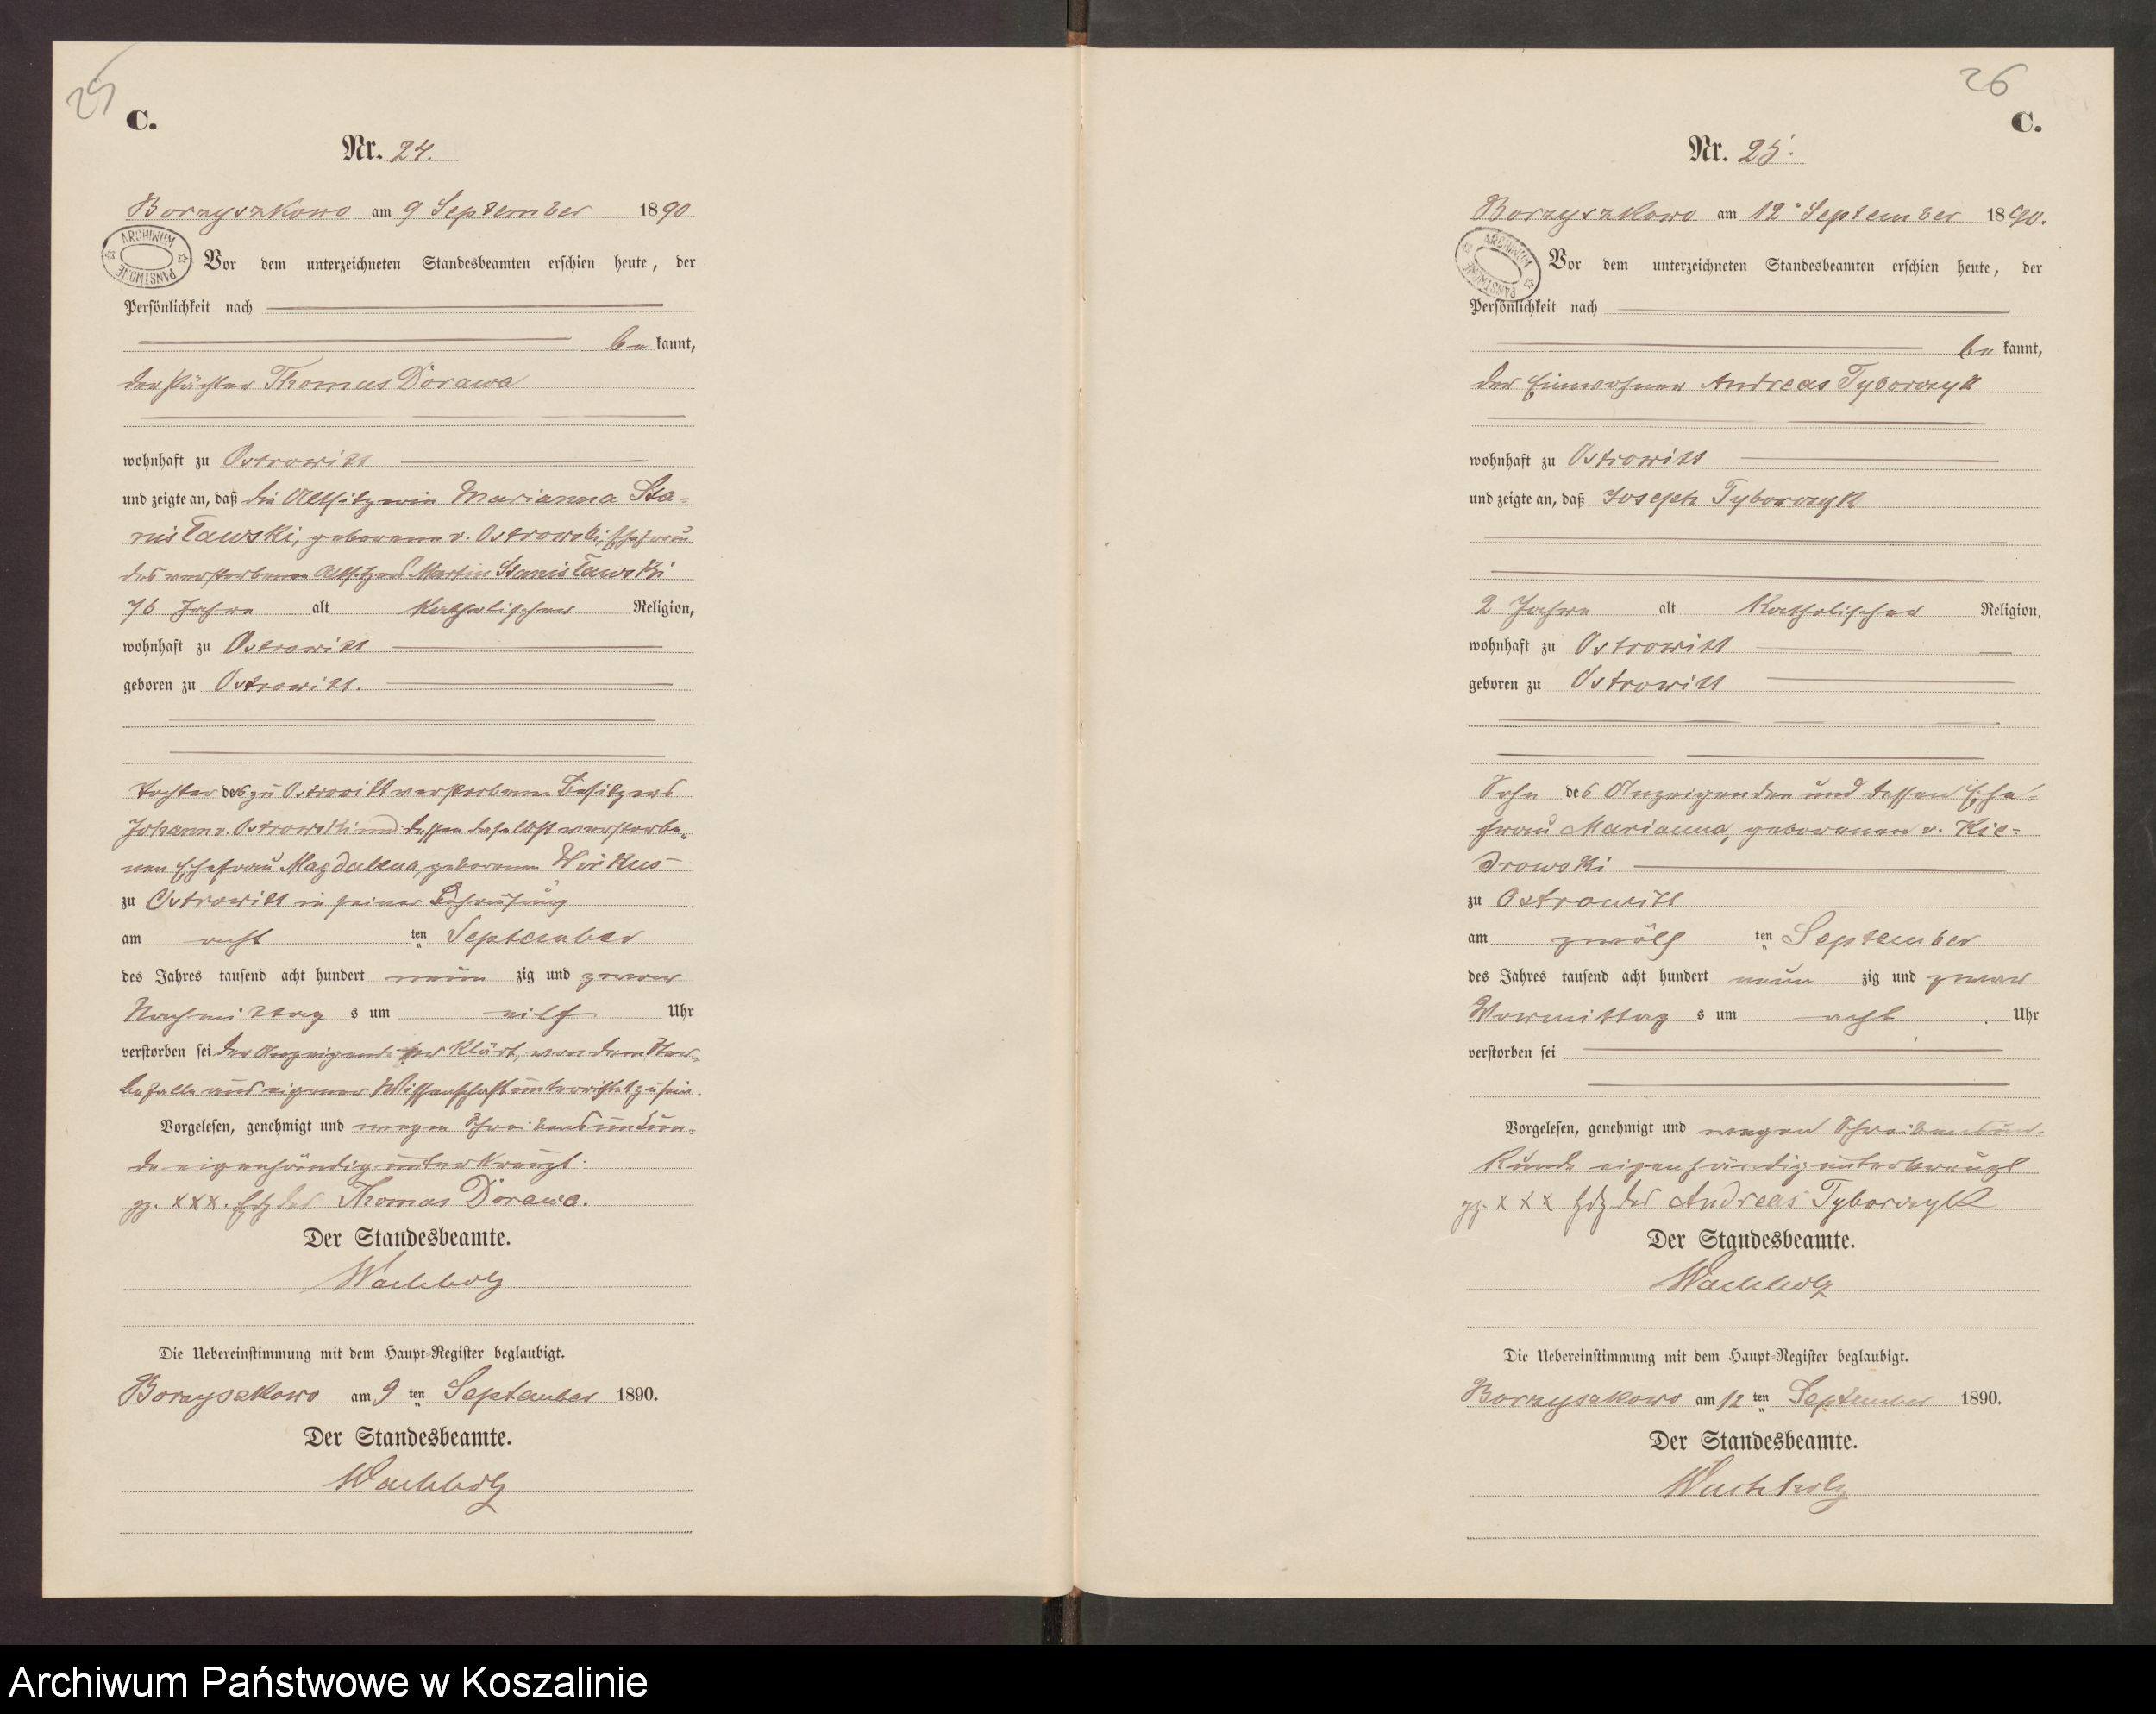 25
C.
Nr. 24.
Borzyszkowo am 9 September 1890
ARCHIWUM PAŃSTWOWE
Vor dem unterzeichneten Standesbeamten erschien heute, der
Persönlichkeit nach
be kannt,
der Pächter Thomas Dorawa
wohnhaft zu Ostrowitt
und zeigte an, daß die Altsitzerin Marianna Sta=
nisławski, geborene v. Ostrowski, Ehefrau
des verstorbenen Altsitzers Martin Stanisławski
76 Jahre alt katholischer Religion,
wohnhaft zu Ostrowitt
geboren zu Ostrowitt.
Tochter des zu Ostrowitt verstorbenen Besitzers
Johann v. Ostrowski und dessen daselbst verstorbe=
nen Ehefrau Magdalena, geborenen Wirkus
zu Ostrowitt in seiner Behausung
am acht ten September
des Jahres tausend acht hundert neun zig und zwar
Nachmittag s um eilf Uhr
verstorben sei der Anzeigende erklärt, von dem Ster=
befalle aus eigener Wissenschaft unterrichtet zu sein.
Vorgelesen, genehmigt und wegen Schreibensunkun=
de eigenhändig unterkreuzt.
gz. xxx. Hdz des Thomas Dorawa.
Der Standesbeamte.
Wachholz
Die Uebereinstimmung mit dem Haupt-Register beglaubigt.
Borzyszkowo am 9 ten September 1890.
Der Standesbeamte.
Wachholz
26
C.
Nr. 25.
Borzyszkowo am 12 September 1890.
ARCHIWUM PAŃSTWOWE
Vor dem unterzeichneten Standesbeamten erschien heute, der
Persönlichkeit nach
be kannt,
der Einwohner Andreas Tyborczyk
wohnhaft zu Ostrowitt
und zeigte an, daß Joseph Tyborczyk
2 Jahre alt katholischer Religion,
wohnhaft zu Ostrowitt
geboren zu Ostrowitt
Sohn des Anzeigenden und dessen Ehe=
frau Marianna, geborenen v. Kie=
drowski
zu Ostrowitt
am zwölf ten September
des Jahres tausend acht hundert neun zig und zwar
Vormittag s um acht Uhr
verstorben sei
Vorgelesen, genehmigt und wegen Schreibensun=
kunde eigenhändig unterkreuzt
gz. x x x Hdz des Andreas Tyborczyk
Der Standesbeamte.
Wachholz
Die Uebereinstimmung mit dem Haupt-Register beglaubigt.
Borzyszkowo am 12 ten September 1890.
Der Standesbeamte.
Wachholz
Archiwum Państwowe w Koszalinie